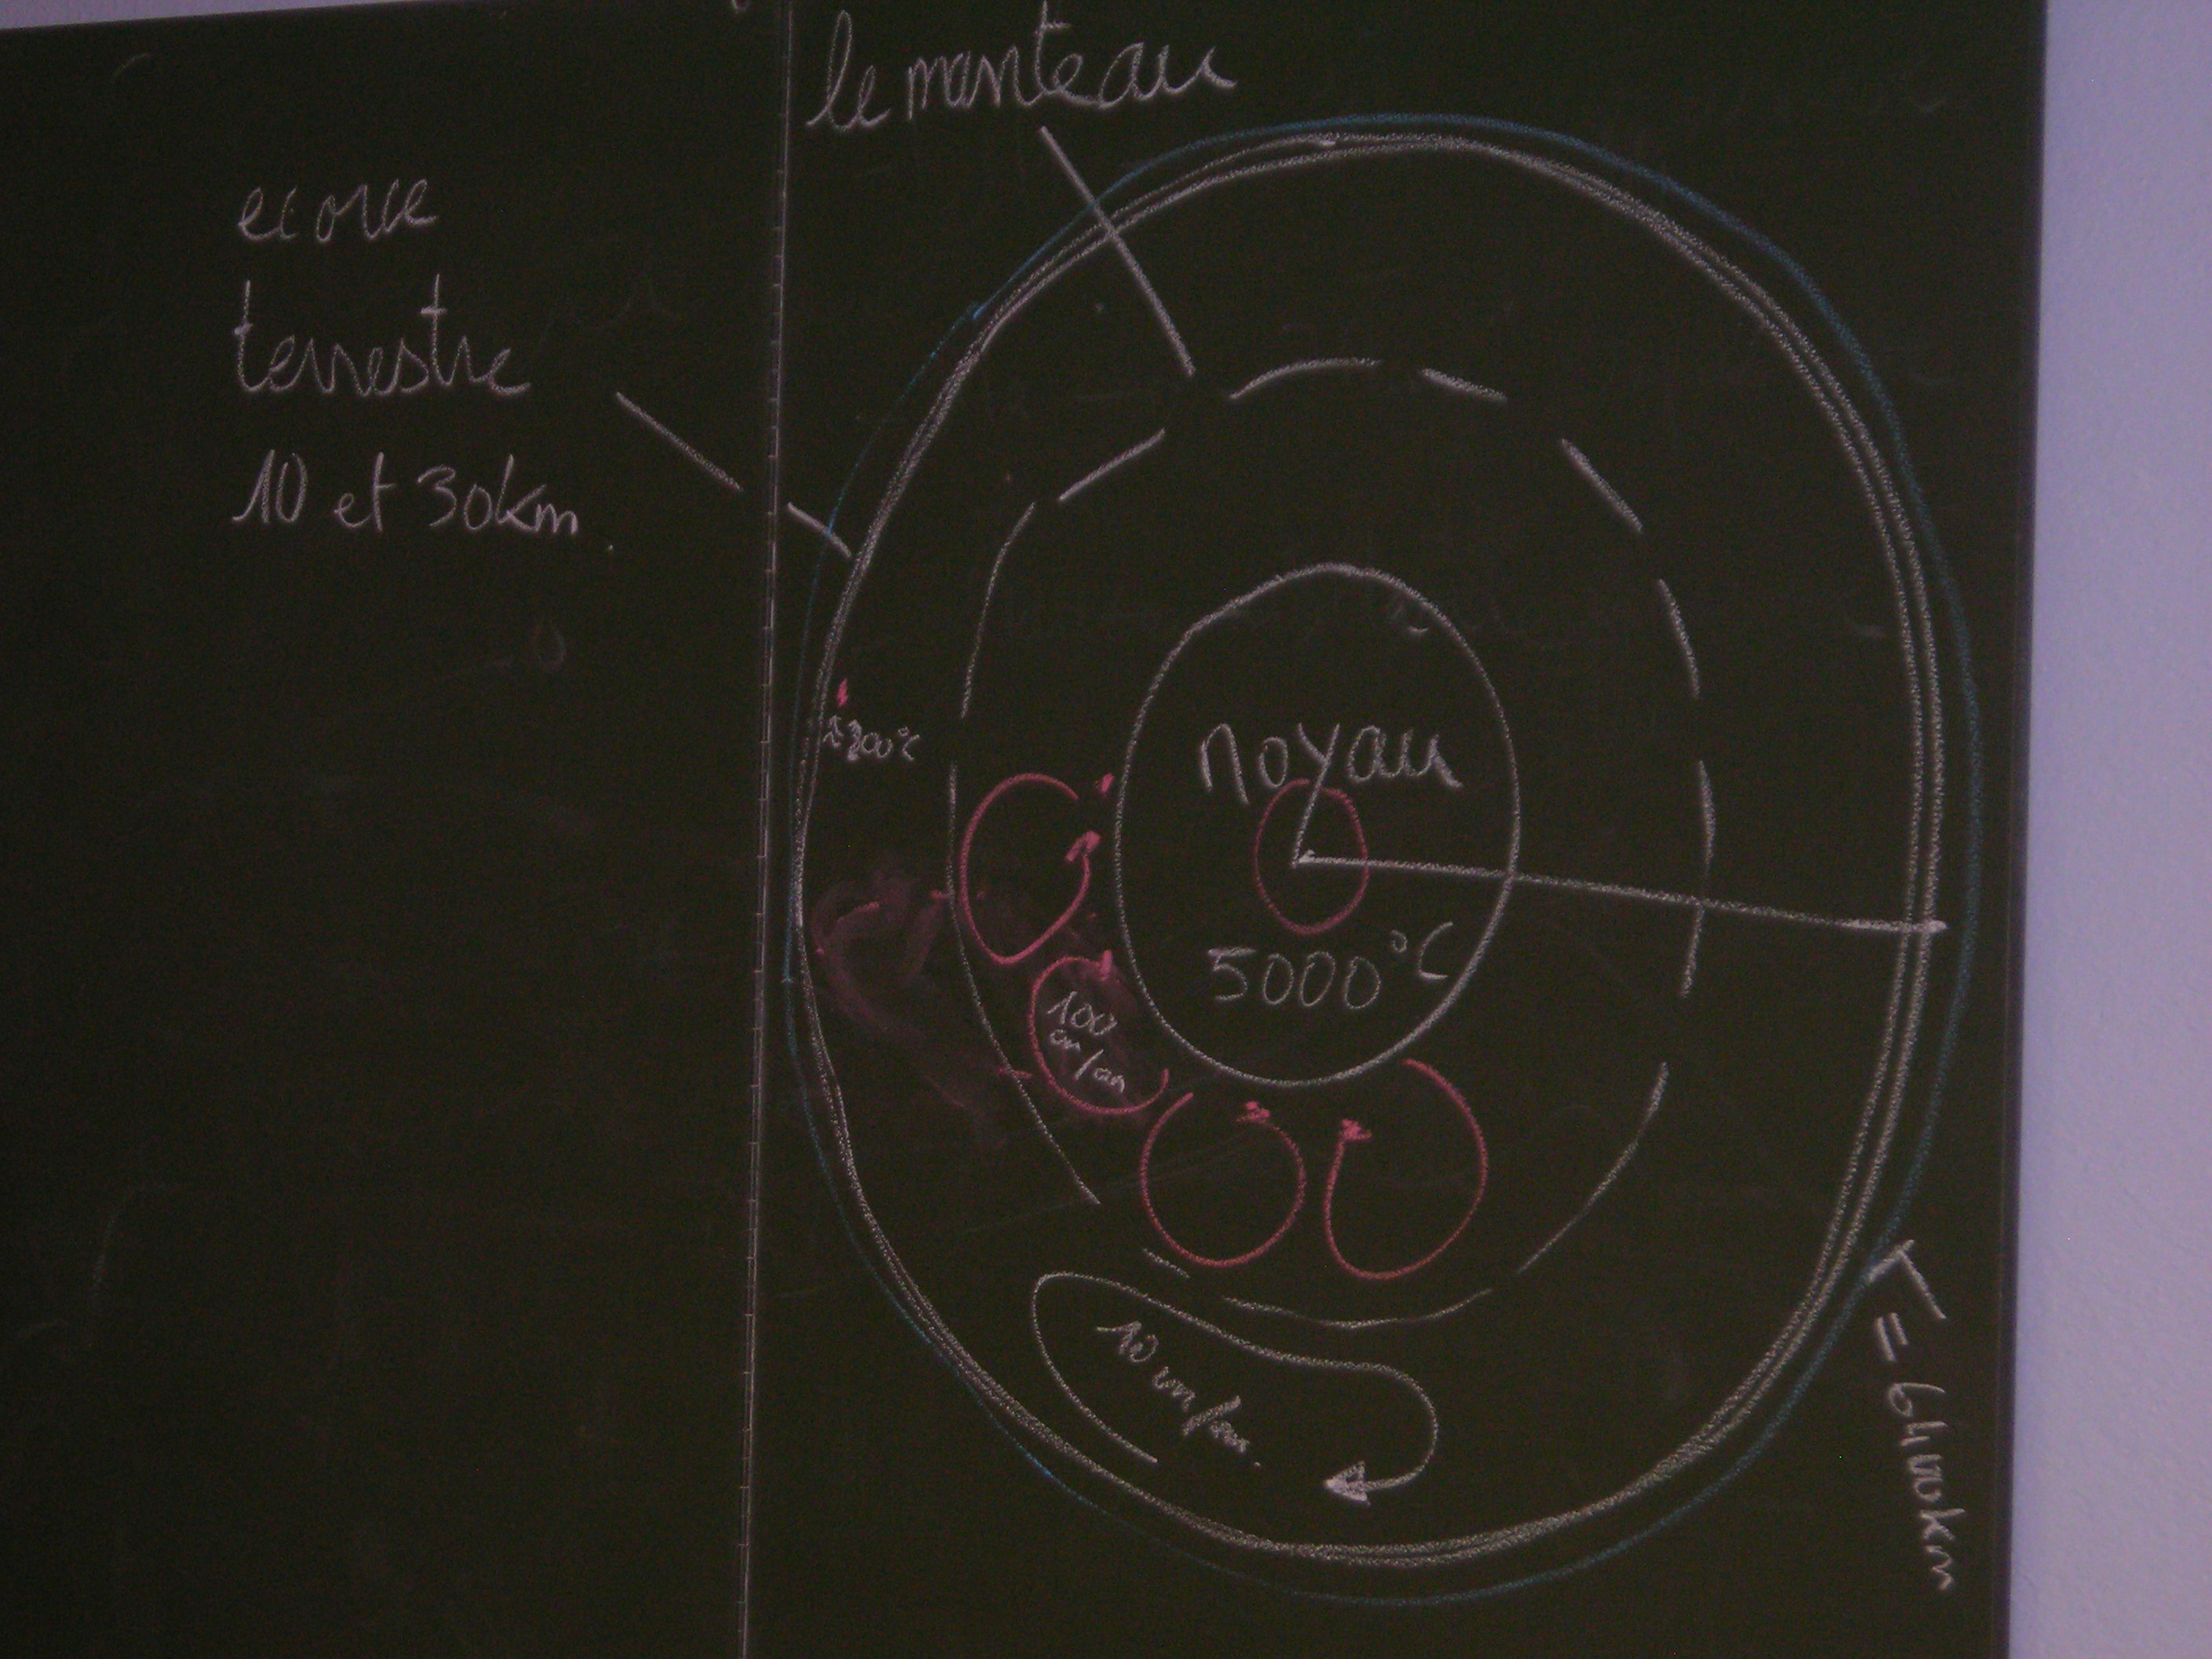 le manteau
ecorce
terrestre
10 et 30km.
noyau
5000°C
100
cm/an
10 cm/an.
r = 6400km